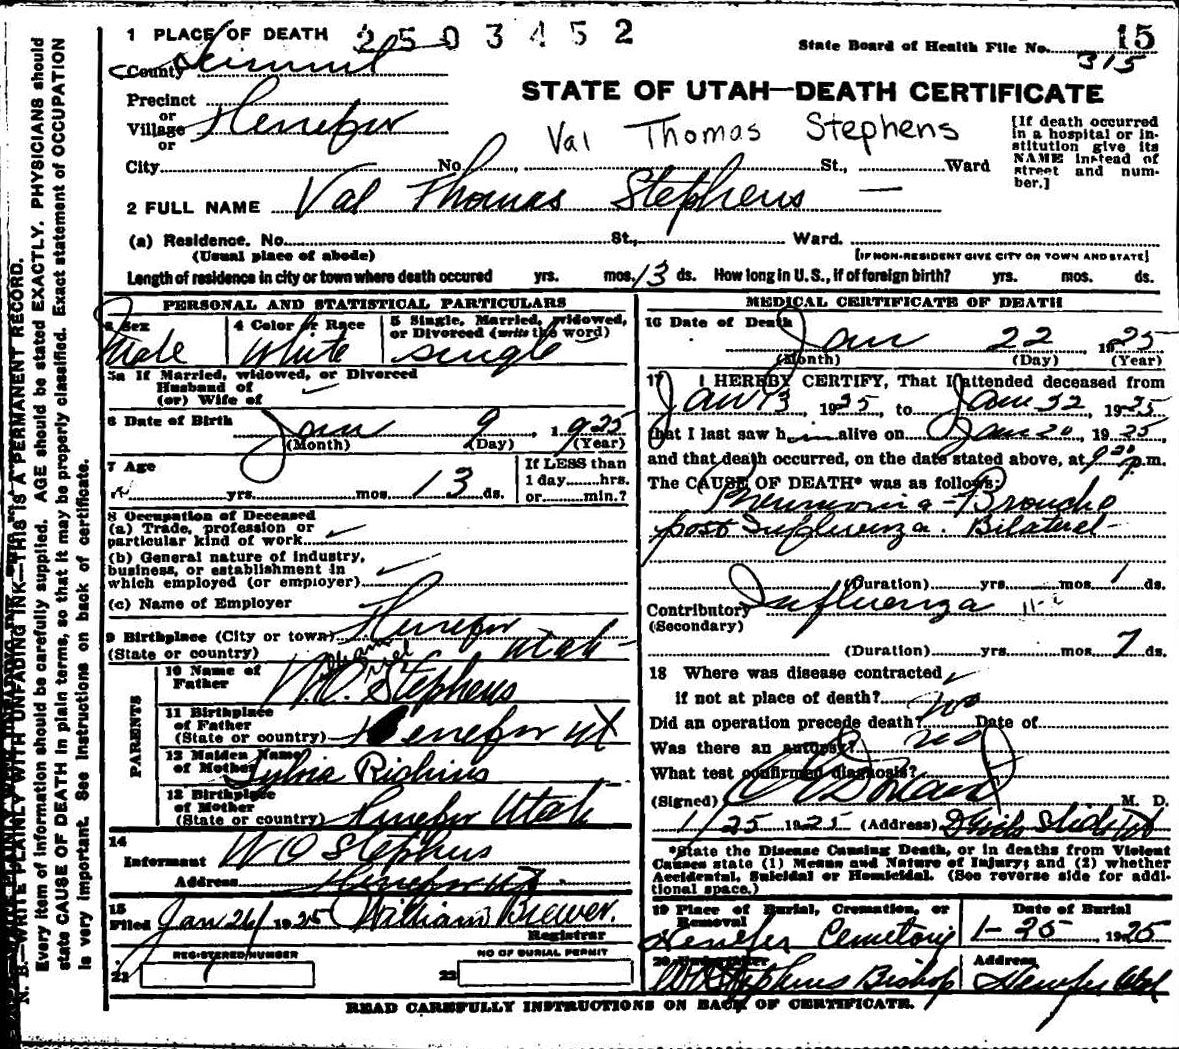 1 PLACE OF DEATH 2503452
State Board of Health File No. 15
315
County Summit
STATE OF UTAH—DEATH CERTIFICATE
Precinct
or
Village Henefer
or
Val Thomas Stephens
[If death occurred
in a hospital or in-
stitution give its
NAME instead of
street and num-
ber.]
City No. St., Ward
2 FULL NAME Val Thomas Stephens —
(a) Residence. No. St., Ward.
(Usual place of abode) [IF NON-RESIDENT GIVE CITY OR TOWN AND STATE]
Length of residence in city or town where death occured yrs. mos. 13 ds. How long in U. S., if of foreign birth? yrs. mos. ds.
PERSONAL AND STATISTICAL PARTICULARS
3 Sex
Male
4 Color or Race
White
5 Single, Married, widowed,
or Divorced (write the word)
single
5a If Married, widowed, or Divorced
Husband of
(or) Wife of
6 Date of Birth Jan 9, 1925
(Month) (Day) (Year)
7 Age
yrs. mos. 13 ds.
If LESS than
1 day hrs.
or min.?
8 Occupation of Deceased
(a) Trade, profession or
particular kind of work
(b) General nature of industry,
business, or establishment in
which employed (or employer)
(c) Name of Employer
9 Birthplace (City or town) Henefer
(State or country) Utah
PARENTS
10 Name of
Father W. O. Stephens
11 Birthplace
of Father
(State or country) Henefer Ut
12 Maiden Name
of Mother Sylvia Richins
13 Birthplace
of Mother
(State or country) Henefer Utah
14
Informant W O Stephens
Address Henefer Ut.
15
Filed Jan 26 1925 William Brewer.
Registrar
REGISTERED NUMBER
21
NO OF BURIAL PERMIT
22
MEDICAL CERTIFICATE OF DEATH
16 Date of Death
Jan 22, 1925
(Month) (Day) (Year)
17 I HEREBY CERTIFY, That I attended deceased from
Jan 13, 1925, to Jan 22, 1925
that I last saw him alive on Jan 20, 1925,
and that death occurred, on the date stated above, at p.m.
The CAUSE OF DEATH* was as follows:
Pneumonia - Broncho
post Influenza. Bilateral
(Duration) yrs. mos. 1 ds.
Contributory Influenza
(Secondary)
(Duration) yrs. mos. 7 ds.
18 Where was disease contracted
if not at place of death?
Did an operation precede death? no Date of
Was there an autopsy? no
What test confirmed diagnosis?
(Signed) M. D.
1/25 1925 (Address) Devils Slide Ut
*State the Disease Causing Death, or in deaths from Violent
Causes state (1) Means and Nature of Injury; and (2) whether
Accidental, Suicidal or Homicidal. (See reverse side for addi-
tional space.)
19 Place of Burial, Cremation, or
Removal
Henefer Cemetory
Date of Burial
1-25 1925
20 Undertaker
Stephens Bishop
Address
Henefer Utah
READ CAREFULLY INSTRUCTIONS ON BACK OF CERTIFICATE.
N. B.—WRITE PLAINLY WITH UNFADING INK—THIS IS A PERMANENT RECORD.
Every item of information should be carefully supplied. AGE should be stated EXACTLY. PHYSICIANS should
state CAUSE OF DEATH in plain terms, so that it may be properly classified. Exact statement of OCCUPATION
is very important. See instructions on back of certificate.